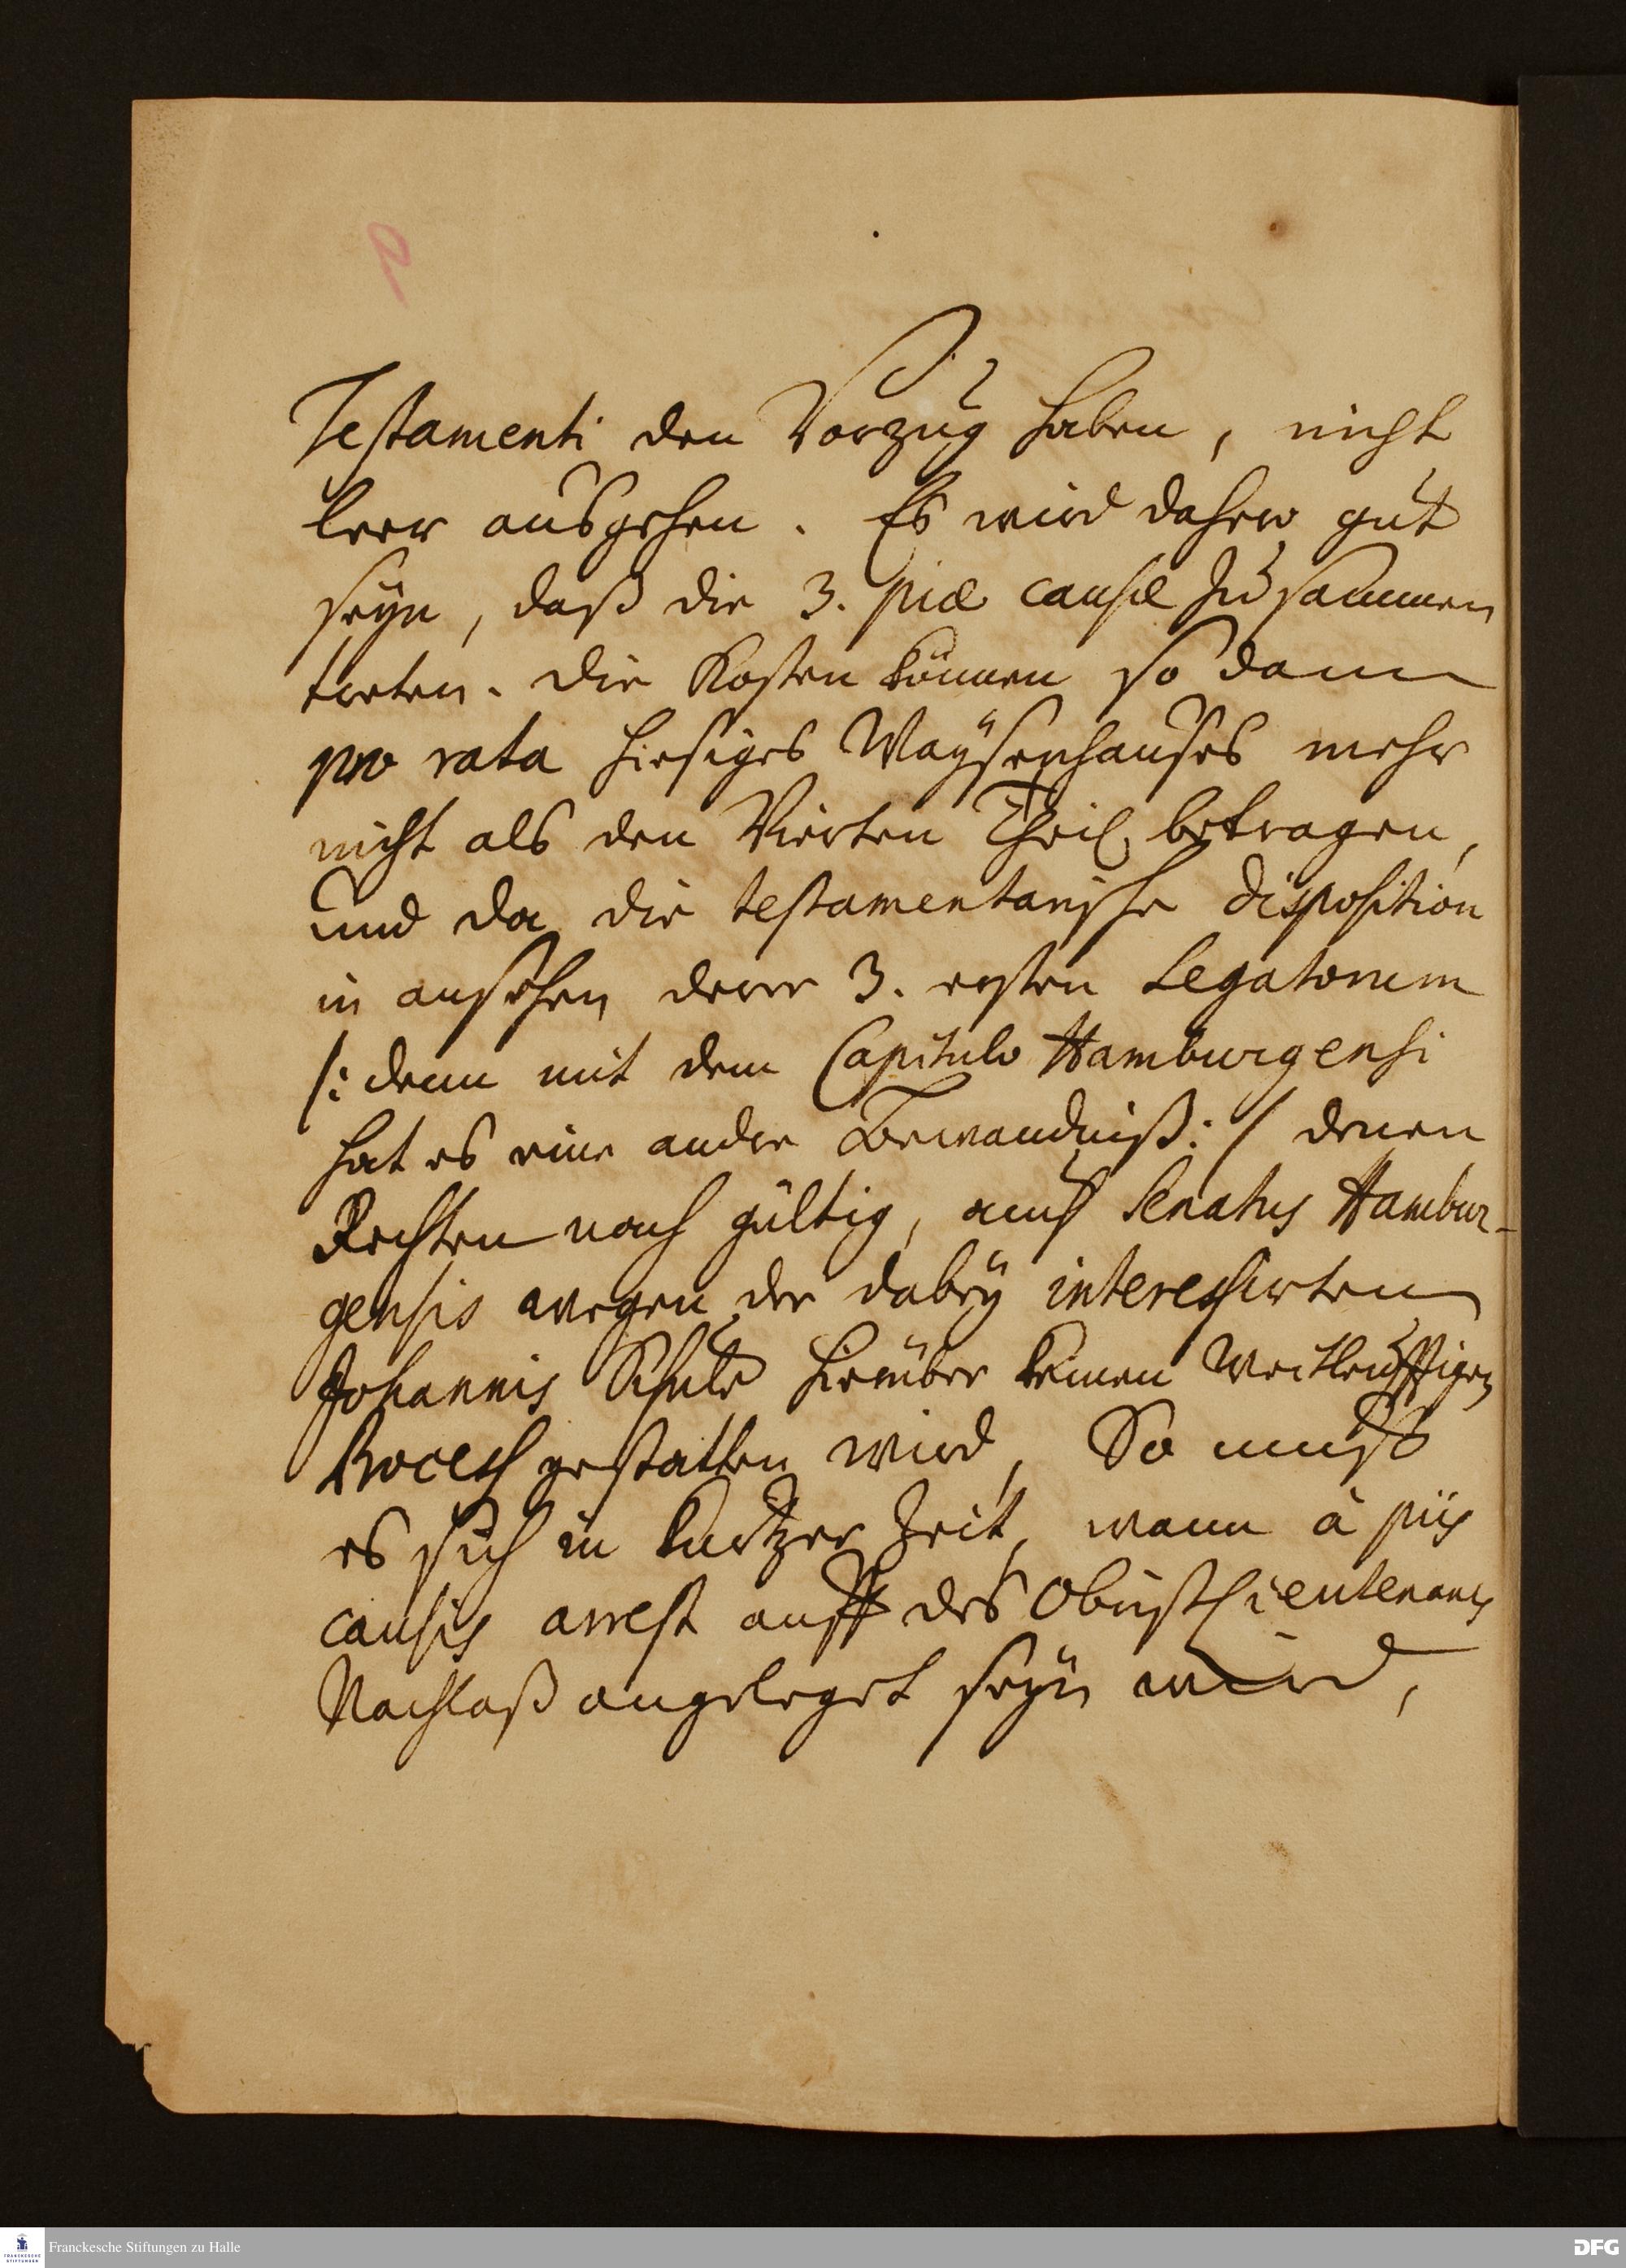 Testamenti den Vorzug haben, nicht
leer ausgehen. Es wird daher gut
seyn, daß die 3. piæ causæ zusammen
treten. Die Kosten können so dann
pro rata hiesiges Waysenhauses mehr
nicht als den Vierten Theil betragen,
und da die testamentarische disposition
in ansehen derer 3. ersten Legatorum
/: denn mit dem Capitulo Hamburgensi
hat es eine andre Bewandniß :/ denen
Rechten nach gültig, auch Senatus Hambur-
gensis wegen der dabey interessirten
Johannis Schule hierüber keinen weitleüfftigen
Process gestatten wird, So muß
es sich in kurtzer Zeit, wann à piis
causis arrest auff des Obristlieutenants
Nachlaß angeleget seyn wird,
Franckesche Stiftungen zu Halle
DFG